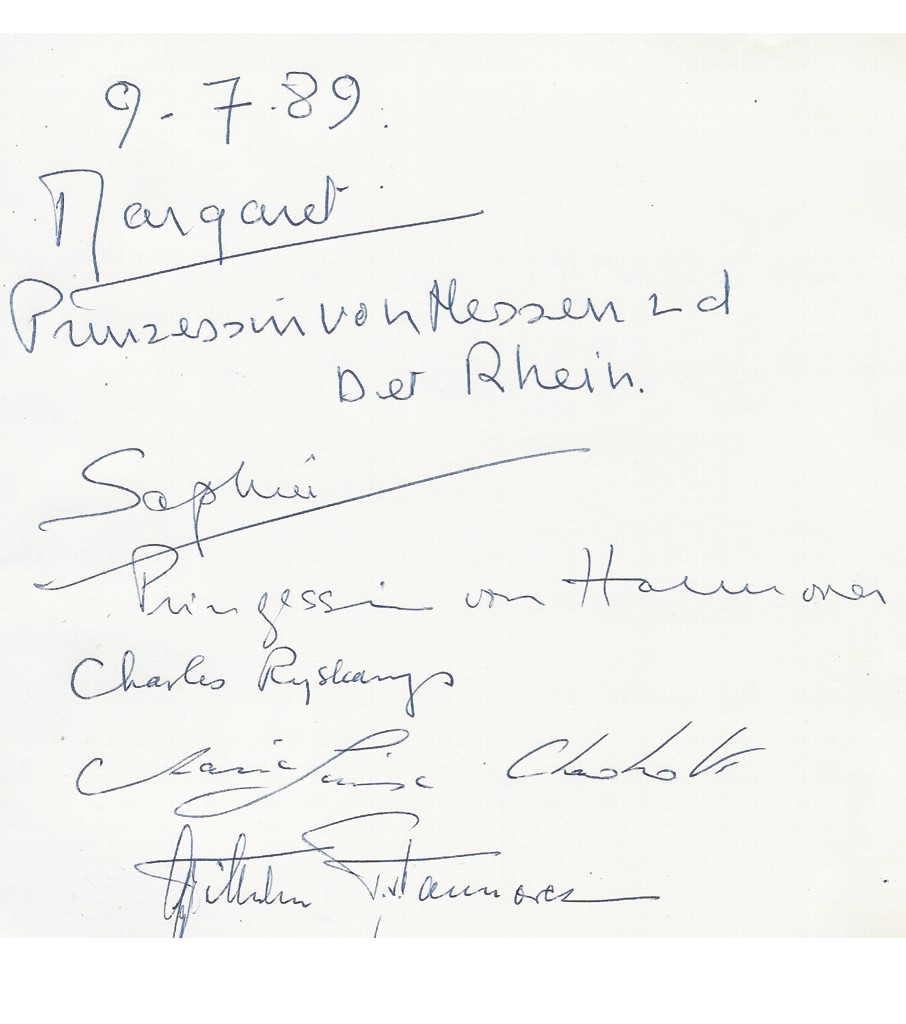 9.7.89.
Margaret
Prinzessin von Hessen und
Der Rhein.
Sophie
Prinzessin von Hannover
Charles Ryskamp
Marie Luise
Wilhelm v. Hannover